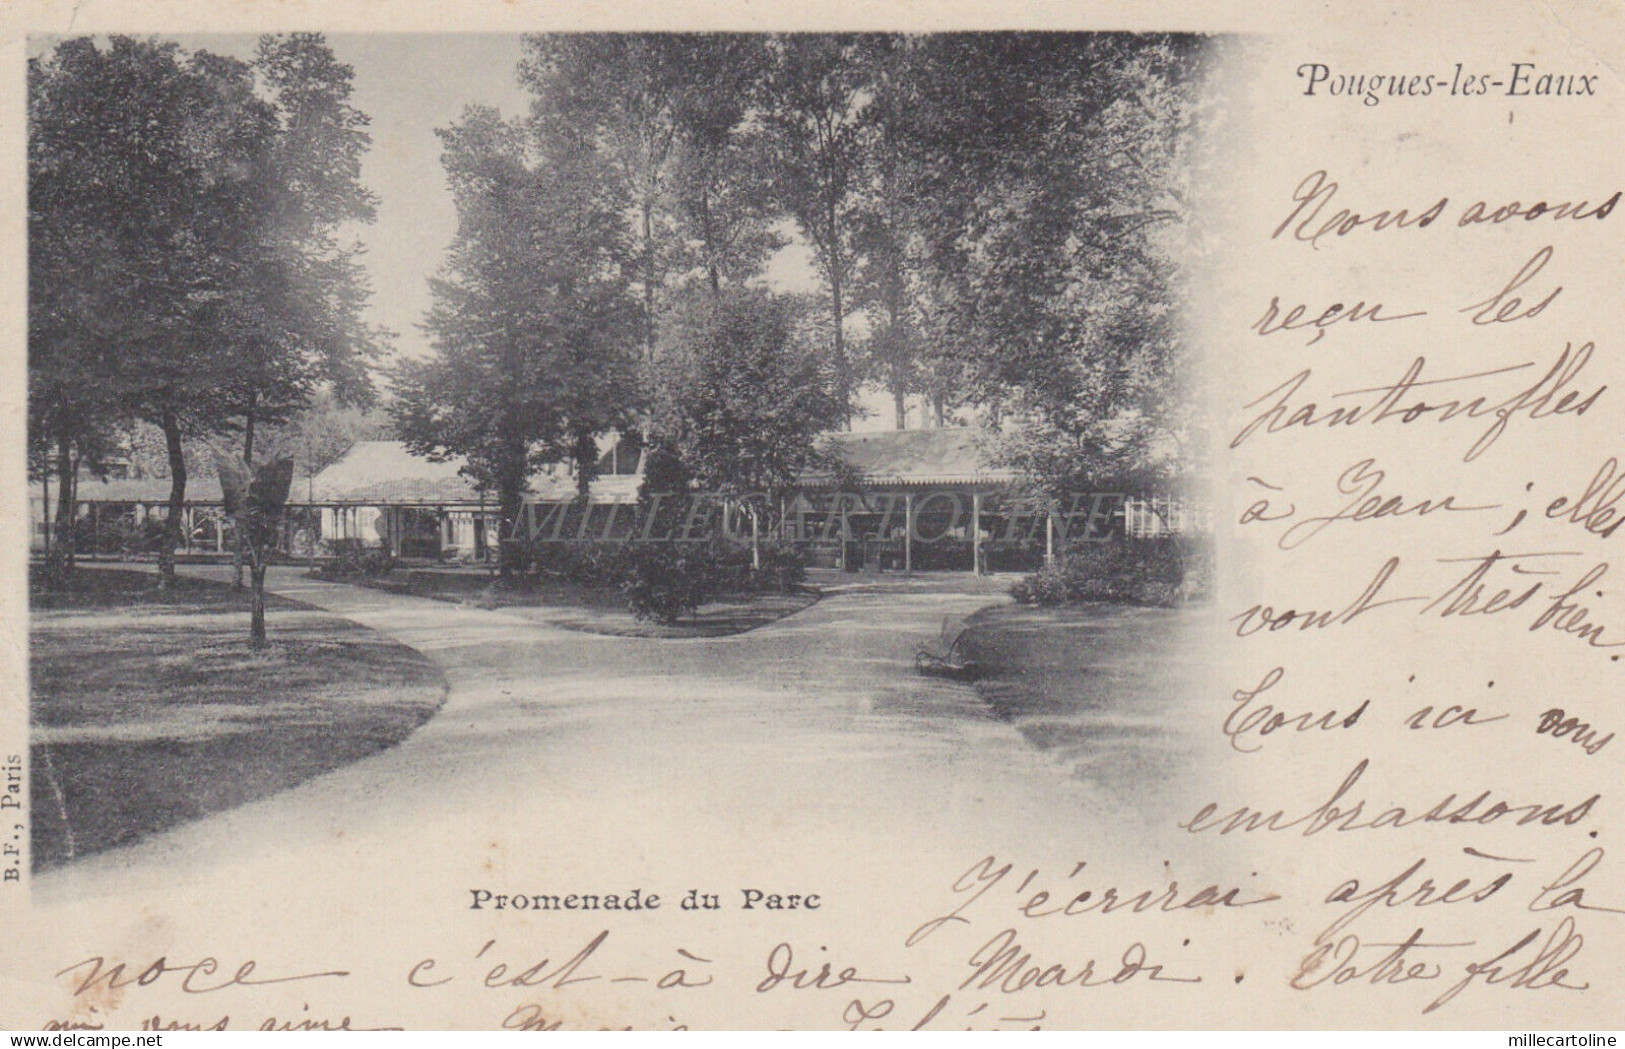 Pougues-les-Eaux
Nous avons
reçu les
pantoufles
à Jean ; elles
vont très bien.
Tous ici vous
embrassons.
J'écrirai après la
noce c'est-à dire Mardi. Votre fille
qui vous aime Marie
Promenade du Parc
B.F., Paris
MILLECARTOLINE
www.delcampe.net
millecartoline